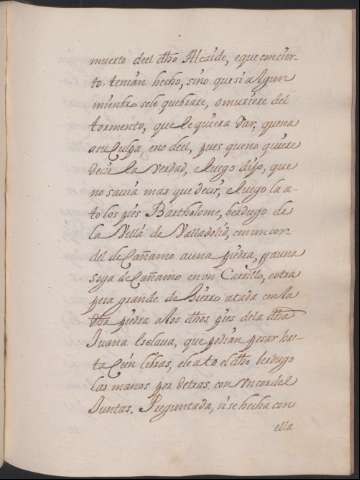 muerto deel dho Alcaide, e que concier-
to tenian hecho, sino que si algun
miembro sele quebrare, o muriere del
tormento, que le quiera dar, que a
a su Culpa, e no deel, pues que no quiere
decir la verdad. Luego dijo, que
no savia mas que decir, e luego la a-
to los pies Bartholome, berdugo de
la Villa de Valladolid, con un cor-
del de Cañamo a una piedra, con una
soga de Cañamo en un Carrillo, e otra
pesa grande de hierro atada con la
dha piedra a los dhos pies de la dha
Juana esclava, que podian pesar has-
ta Cien libras, e le ato el dho berdugo
las manos por detras con un cordel
Juntas. Preguntada, si se hecha con
ella